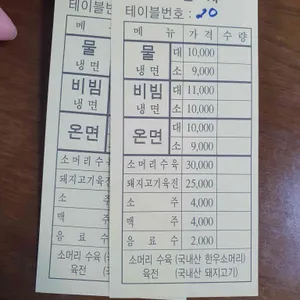 테이블번호 : 20
메 뉴 가 격 수 량
물 냉면 대 10,000
소 9,000
비빔 냉면 대 11,000
소 10,000
온면 대 10,000
소 9,000
소머리수육 30,000
돼지고기육전 25,000
소 주 4,000
맥 주 4,000
음 료 수 2,000
소머리 수육 (국내산 한우소머리)
육전 (국내산 돼지고기)
테이블번호
메
물 냉면
비빔 냉면
온면
소머리
돼지고
소
맥
음 료
소머리 수육
육전